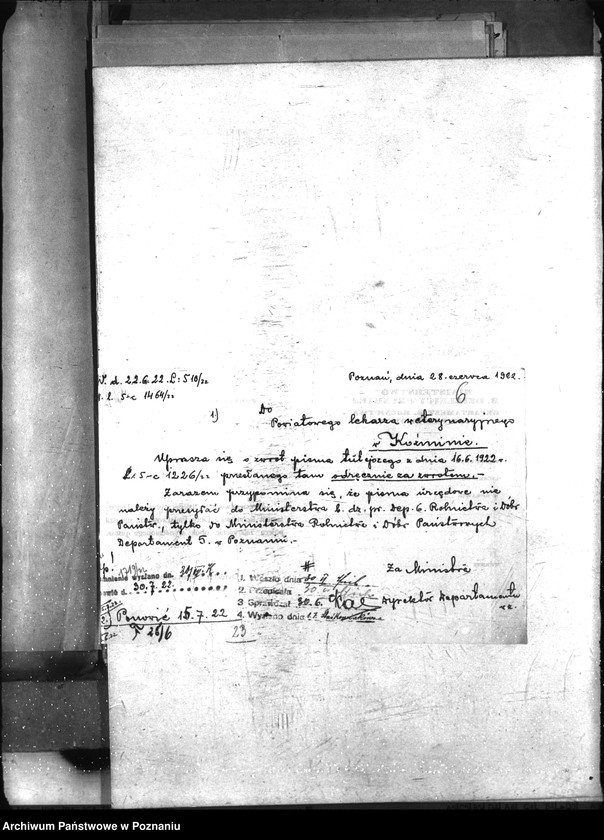 d. 22.6.22. L: 510/22
5-c 1464/22
Poznań, dnia 28. czerwca 1922.
6
1) Do
Powiatowego lekarza weterynaryjnego
w Koźminie.
Uprasza się o zwrot pisma tutejszego z dnia 16.6.1922 r.
L: 5-c 1226/22 przesłanego tam odręcznie za zwrotem.-
Zarazem przypomina się, że pisma urzędowe nie
należy przesyłać do Ministerstwa b. dz. pr. Dep. 6. Rolnictwa i Dóbr
Państw., tylko do Ministerstwa Rolnictwa i Dóbr Państwowych
Departament 5. w Poznaniu.-
Za Ministra
Dyrektor Departamentu
wysłano dn.
d. 30.7.22.
Ponowić 15.7.22
26/6
1. Weszło dnia
2. Przepisała
3 Sprawdzał 30.6.
4. Wysłano dnia
23
Archiwum Państwowe w Poznaniu